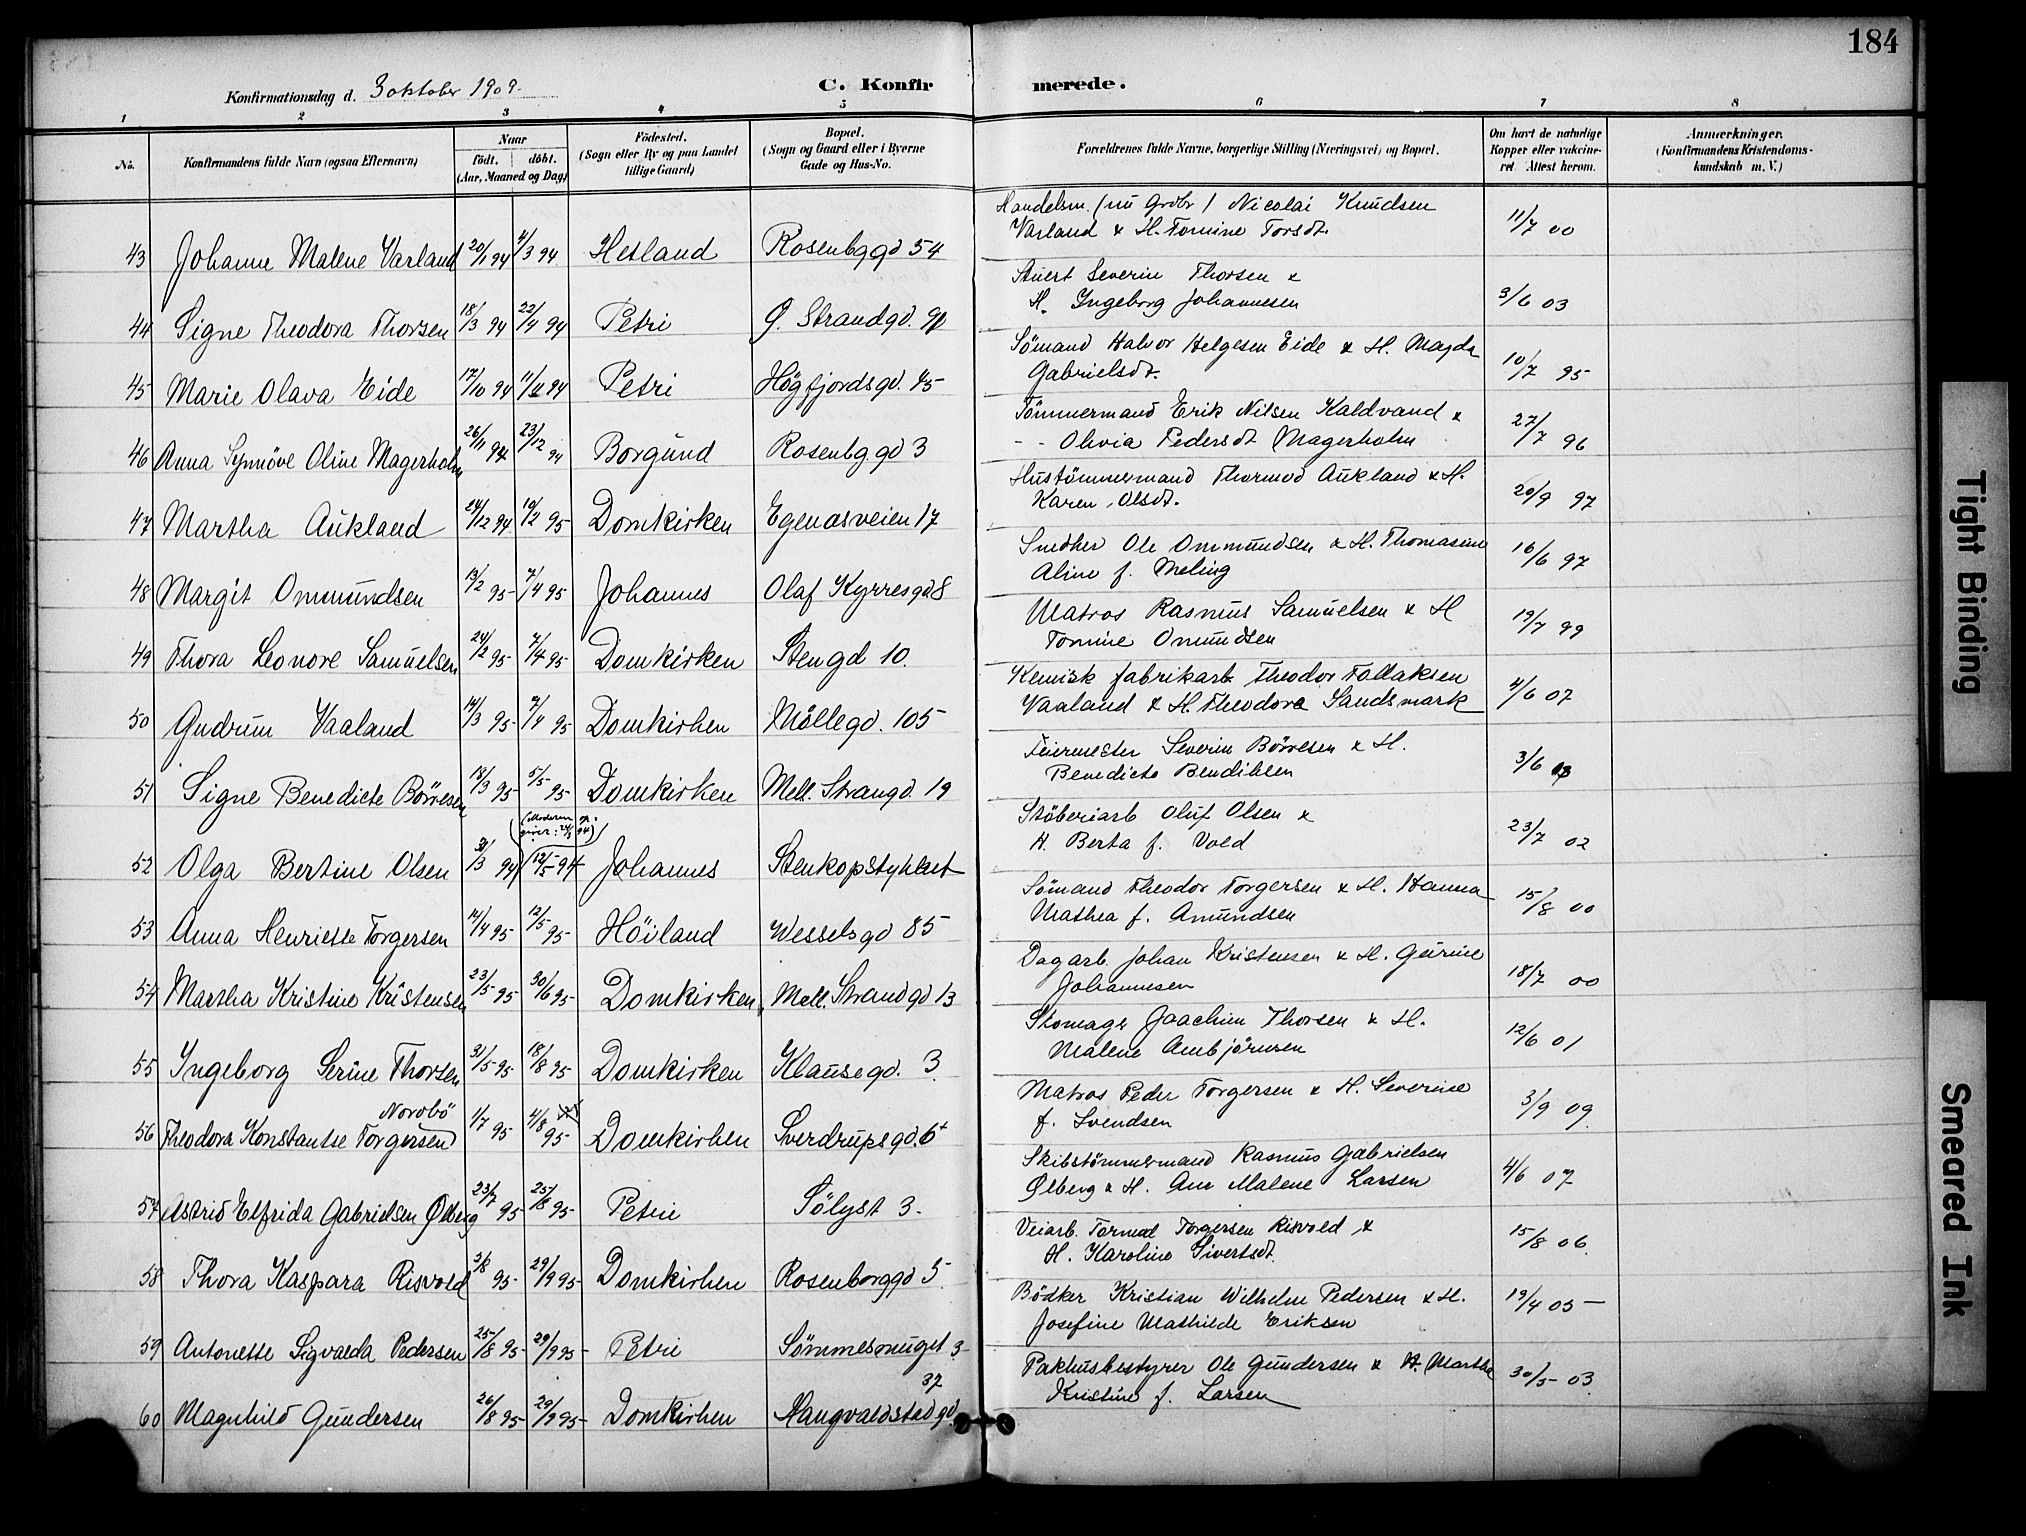 184
Konfirmationsdag d. 3 oktober 1909.
C. Konfirmerede.
1 2 3 4 5 6 7 8
No.
Konfirmandens fulde Navn (ogsaa Efternavn)
Naar
født. døbt.
(Aar, Maaned og Dag)
Födested.
(Sogn eller By og paa Landet
tillige Gaard)
Bopæl.
(Sogn og Gaard eller i Byerne
Gade og Hus-No.
Forældrenes fulde Navne, borgerlige Stilling (Næringsvei) og Bopæl.
Om havt de naturlige
Kopper eller vakcine-
ret. Attest herom.
Anmærkninger.
(Konfirmandens Kristendoms-
kundskab m. V.)
43 Johanne Malene Varland 20/1 94 4/3 94 Hetland Rosenbg gd 54 Handelsm. (nu Grdbr) Nicolai Knudsen
Varland & H. Tomine Torsdt. 11/7 00
44 Signe Theodora Thorsen 18/3 94 22/4 94 Petri Ø. Strandgd. 90 Stuert Severin Thorsen &
H. Ingeborg Johannesen 3/6 03
45 Marie Olava Eide 17/10 94 11/11 94 Petri Högfjordsgd. 45 Sömand Halvor Helgesen Eide & H. Magda
Gabrielsdt. 10/7 95
46 Anna Synnöve Oline Magerholm 26/11 94 23/12 94 Borgund Rosenbg gd 3 Tömmermand Erik Nilsen Kaldvand &
- - Olivia Pedersdt Magerholm 27/7 96
47 Martha Aukland 24/12 94 10/2 95 Domkirken Egenæsveien 17 Hustömmermand Thormod Aukland & H.
Karen Olsdt. 20/9 97
48 Margit Ommundsen 13/2 95 7/4 95 Johannes Olaf Kyrres gd 8 Smedher Ole Ommundsen & H. Thomasine
Aline f. Meling 16/6 97
49 Thora Leonore Samuelsen 24/2 95 7/4 95 Domkirken Stengd 10. Matros Rasmus Samuelsen & H
Tomine Omundsen 19/7 99
50 Gudrun Vaaland 14/3 95 7/4 95 Domkirken Möllegd. 105 Kemisk fabrikarb Theodor Tollaksen
Vaaland & H. Theodora Sandsmark 4/6 07
51 Signe Benedicte Börresen 13/3 95 5/5 95 Domkirken Mell. Strangd. 19 Feiermester Severin Börresen & H.
Benedicte Bendiksen 3/6 03
(Moderen op-
giver: 24/3 94)
52 Olga Bertine Olsen 31/3 94 (12/5 94 Johannes Stenkopstykket Stöberiarb Oluf Olsen &
H. Berta f. Vold 23/7 02
53 Anna Henriette Torgersen 14/4 95 12/5 95 Höiland Wesselsgd 85 Sömand Theodor Torgersen & H. Hanna
Mathea f. Amundsen 15/8 00
54 Martha Kristine Kristensen 23/5 95 30/6 95 Domkirken Mell. Strandgd 13 Dagarb. Johan Kristensen & H. Gurine
Johannesen 18/7 00
55 Ingeborg Serine Thorsen 31/5 95 18/8 95 Domkirken Klausegd. 3. Skomager Joachim Thorsen & H.
Malene Ambjörnsen 12/6 01
Norobö
56 Theodora Konstantse Torgersen 1/7 95 4/8 95 Domkirken Sverdrupsgd. 6 Matros Peder Torgersen & H. Severine
f. Svendsen 3/9 09.
57 Astrid Elfrida Gabrielsen Ølberg 23/7 95 25/8 95 Petri Sölyst 3. Skibstömmermand Rasmus Gabrielsen
Ølberg & H. Ane Malene Larsen 4/6 07
58 Thora Kaspara Risvold 3/8 95 29/9 95 Domkirken Rosenborggd 5 Veiarb. Tormod Torgersen Risvold &
H. Karoline Sivertsdt. 15/8 06.
59 Antonette Sigvalda Pedersen 25/8 95 29/9 95 Petri Sömmesmuget 3 Bödker Kristian Wilhelm Pedersen & H.
Josefine Mathilde Eriksen 19/4 05
60 Magnhild Gundersen 26/8 95 29/9 95 Domkirken Haugvaldstad gd. 37 Pakhusbestyrer Ole Gundersen & H. Martha
Kristine f. Larsen 30/5 03.
Tight Binding
Smeared Ink